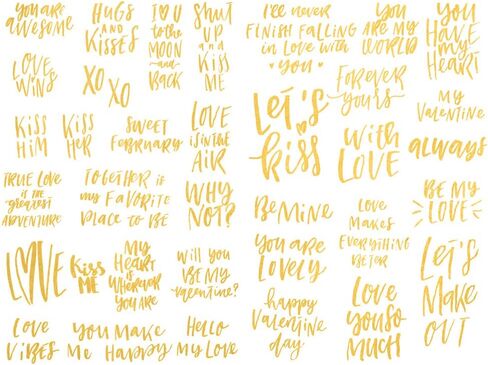 you are
awesome
HUGS
AND
KISSES
I ♡ U
to the
MOON
-and-
BACK
Shut
UP
and
KISS
ME
LOVE
WINS
XO
XO
KISS
HIM
KISS
HER
SWEET
FEBRUARY
LOVE
IS IN THE
AIR
TRUE LOVE
is the
greatest
ADVENTURE
TOGETHER IS
my FAVORITE
PLACE to BE
WHY
NOT?
LOVE
KISS
ME
MY
HEART
IS
WHEREVER
YOU ARE
Will you
BE MY
Valentine?
LOVE
VIBES
YOU MAKE
Me HAPPY
Hello
My LOVE
I'll never
FINISH FALLING
in LOVE with
YOU
YOU
ARE MY
WORLD
YOU
HAVE
my
HEART
Let's
kiss
FOREVER
yours
MY
VALENTINE
with
LOVE
always
Be Mine
LOVE
MAKES
EVERYTHING
BETTER
BE MY
LOVE
YOU ARE
LOVELY
happy
VALENTINE
day
LOVE
YOU SO
MUCH
LET'S
MAKE
OUT